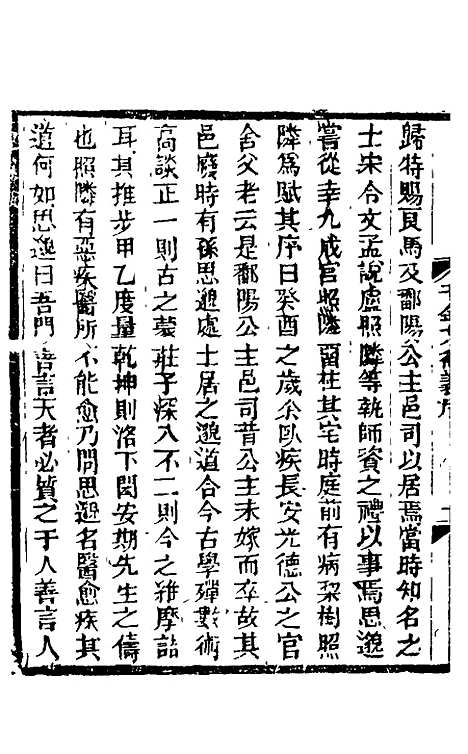 歸特賜良馬及鄱陽公主邑司以居焉當時知名之
士宋令文孟說盧照隣等執師資之禮以事焉思邈
嘗從幸九成宮照隣留在其宅時庭前有病梨樹照
隣爲賦其序曰癸酉之歲余臥疾長安光德公之官
舍父老云是鄱陽公主邑司昔公主未嫁而卒故其
邑廢時有孫思邈處士居之邈道合今古學殫數術
高談正一則古之蒙莊子深入不二則今之維摩詰
耳其推步甲乙度量乾坤則洛下閎安期先生之儔
也照隣有惡疾醫所不能愈乃問思邈名醫愈疾其
道何如思邈曰吾聞善言天者必質之于人善言人